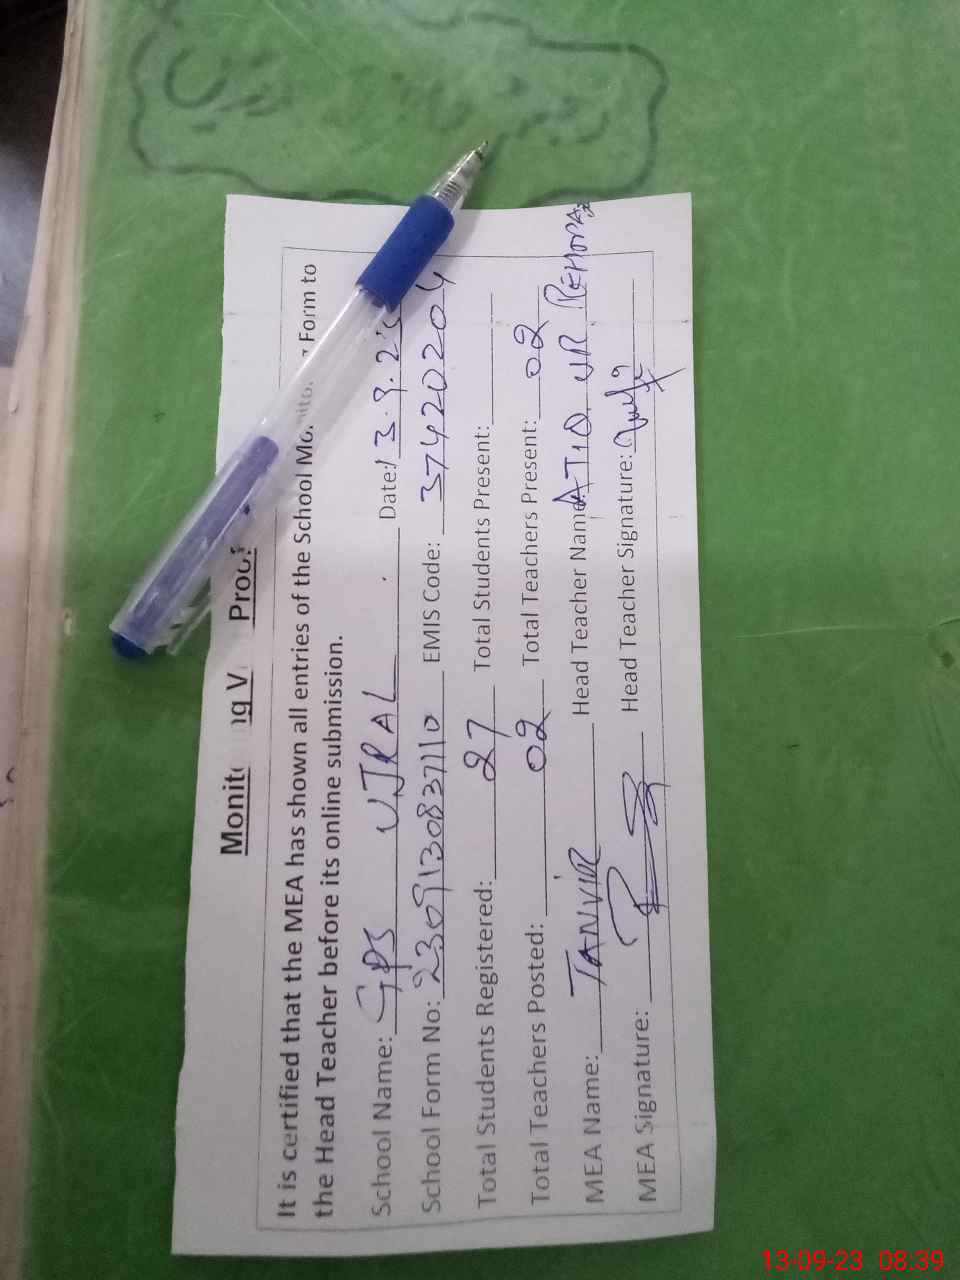 It is certified that the MEA has shown all entries of the School Form to
the Head Teacher before its online submission.
School Name: GPS UJRAL Date: 13.9.23
School Form No: 2309130837110 EMIS Code: 37420204
Total Students Registered: 27 Total Students Present:
Total Teachers Posted: 02 Total Teachers Present: 02
MEA Name: TANVIR Head Teacher Name ATIQ UR REHMAN
MEA Signature: Head Teacher Signature:
13-09-23 08:39